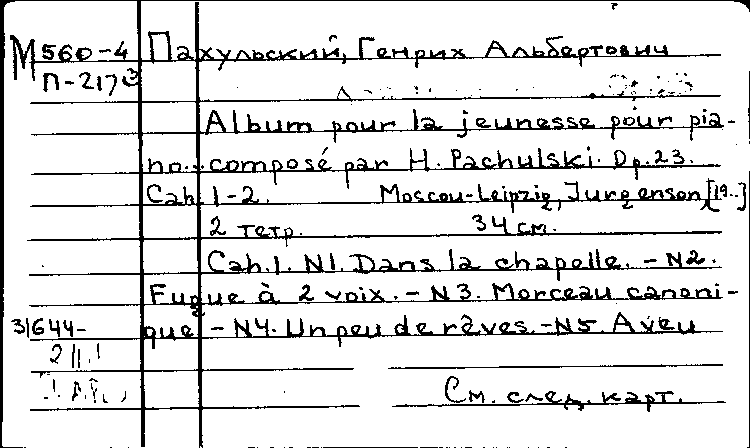 М 560-4 Пахульский, Генрих Альбертович
П-217
Album pour la jeunesse pour pia-
no... composé par H. Pachulski. Op. 23.
Cah. 1-2. Moscou-Leipzig, Jurgenson, [19..]
2 тетр. 34 см.
Cah. 1. N1. Dans la chapelle. - N2.
Fugue à 2 voix. - N3. Morceau canoni-
31644- que - N4. Un peu de rêves. - N5. Aveu
См. след. карт.